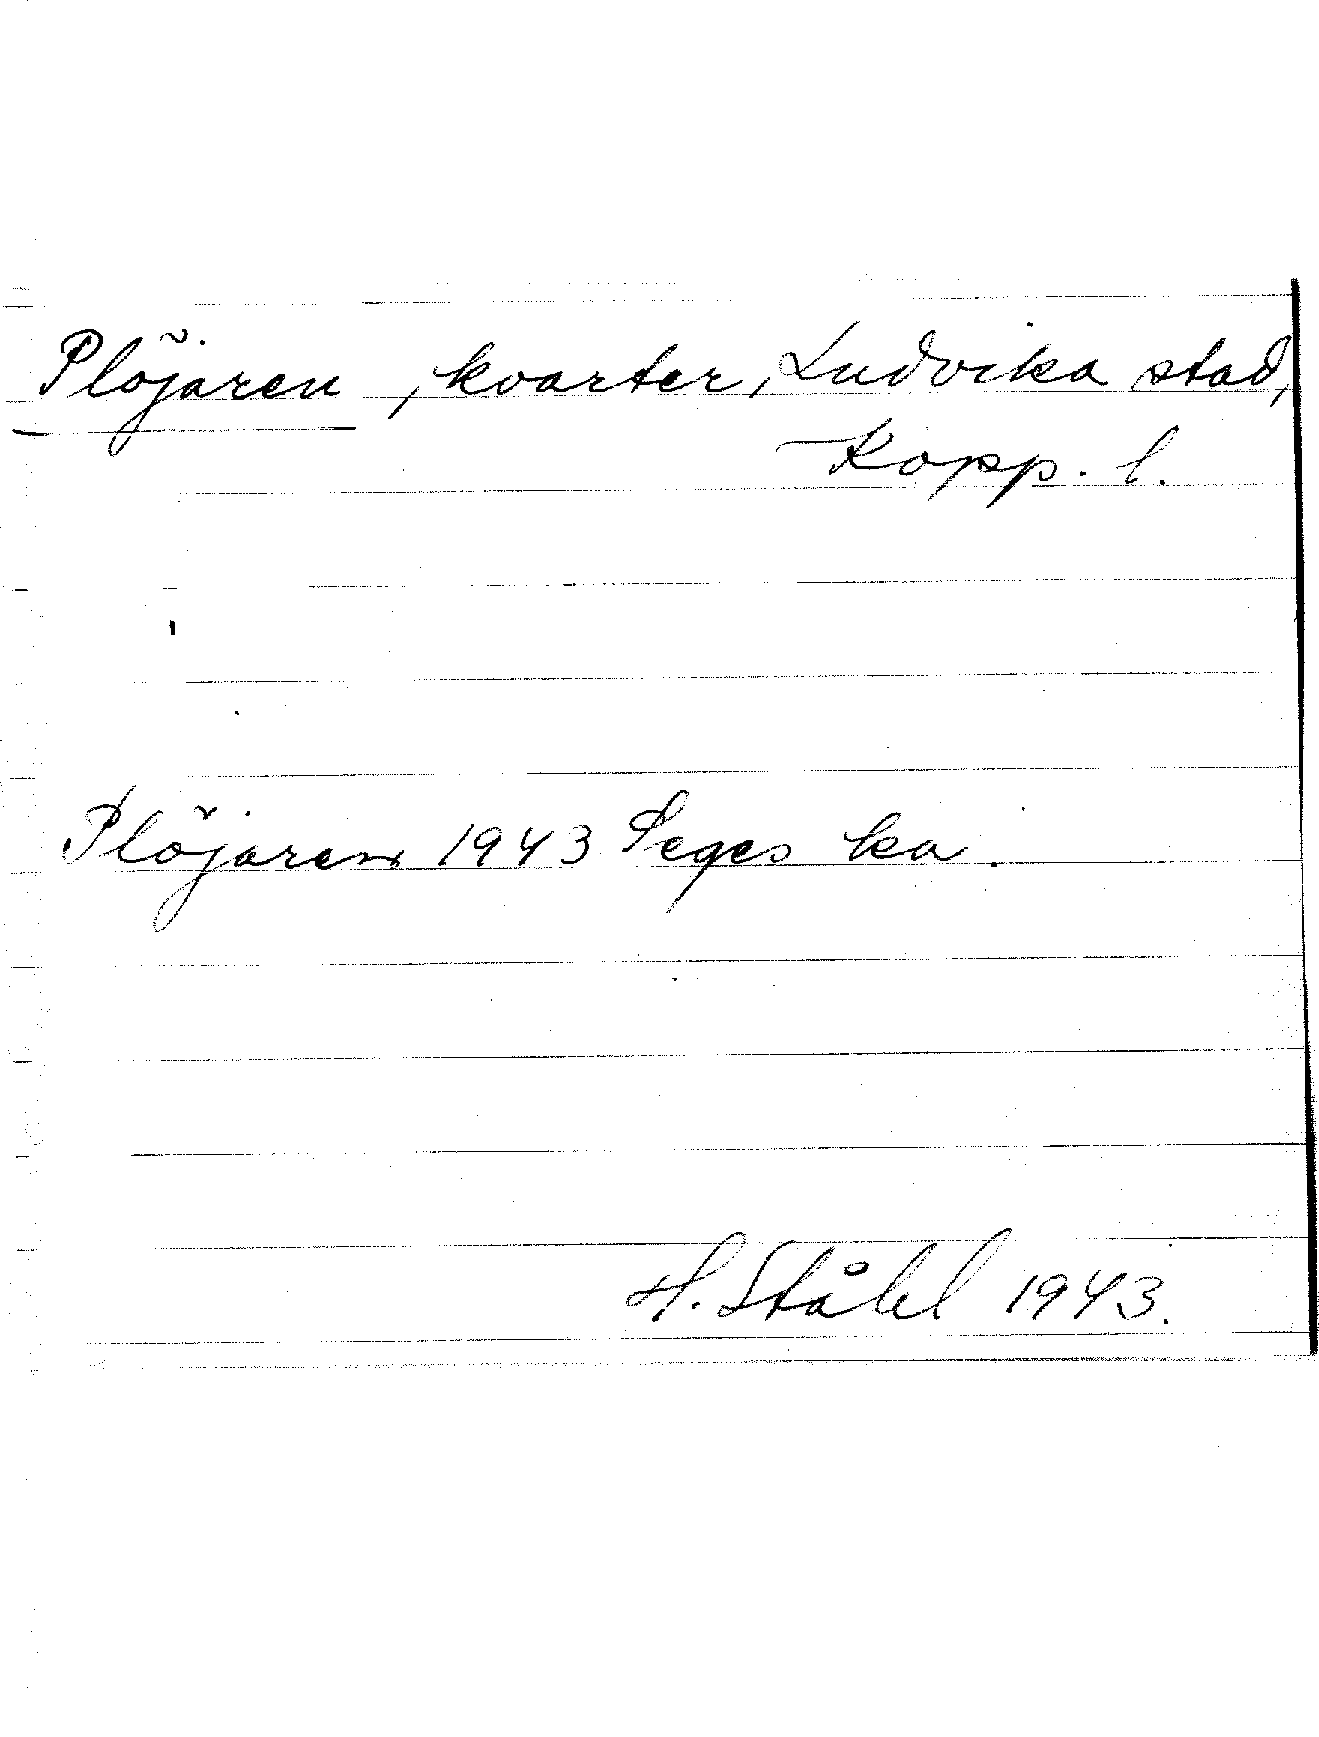 Plöjaren, kvarter, Ludvika stad,
Kopp. l.
Plöjaren 1943 Seges ka.
H. Ståhl 1943.